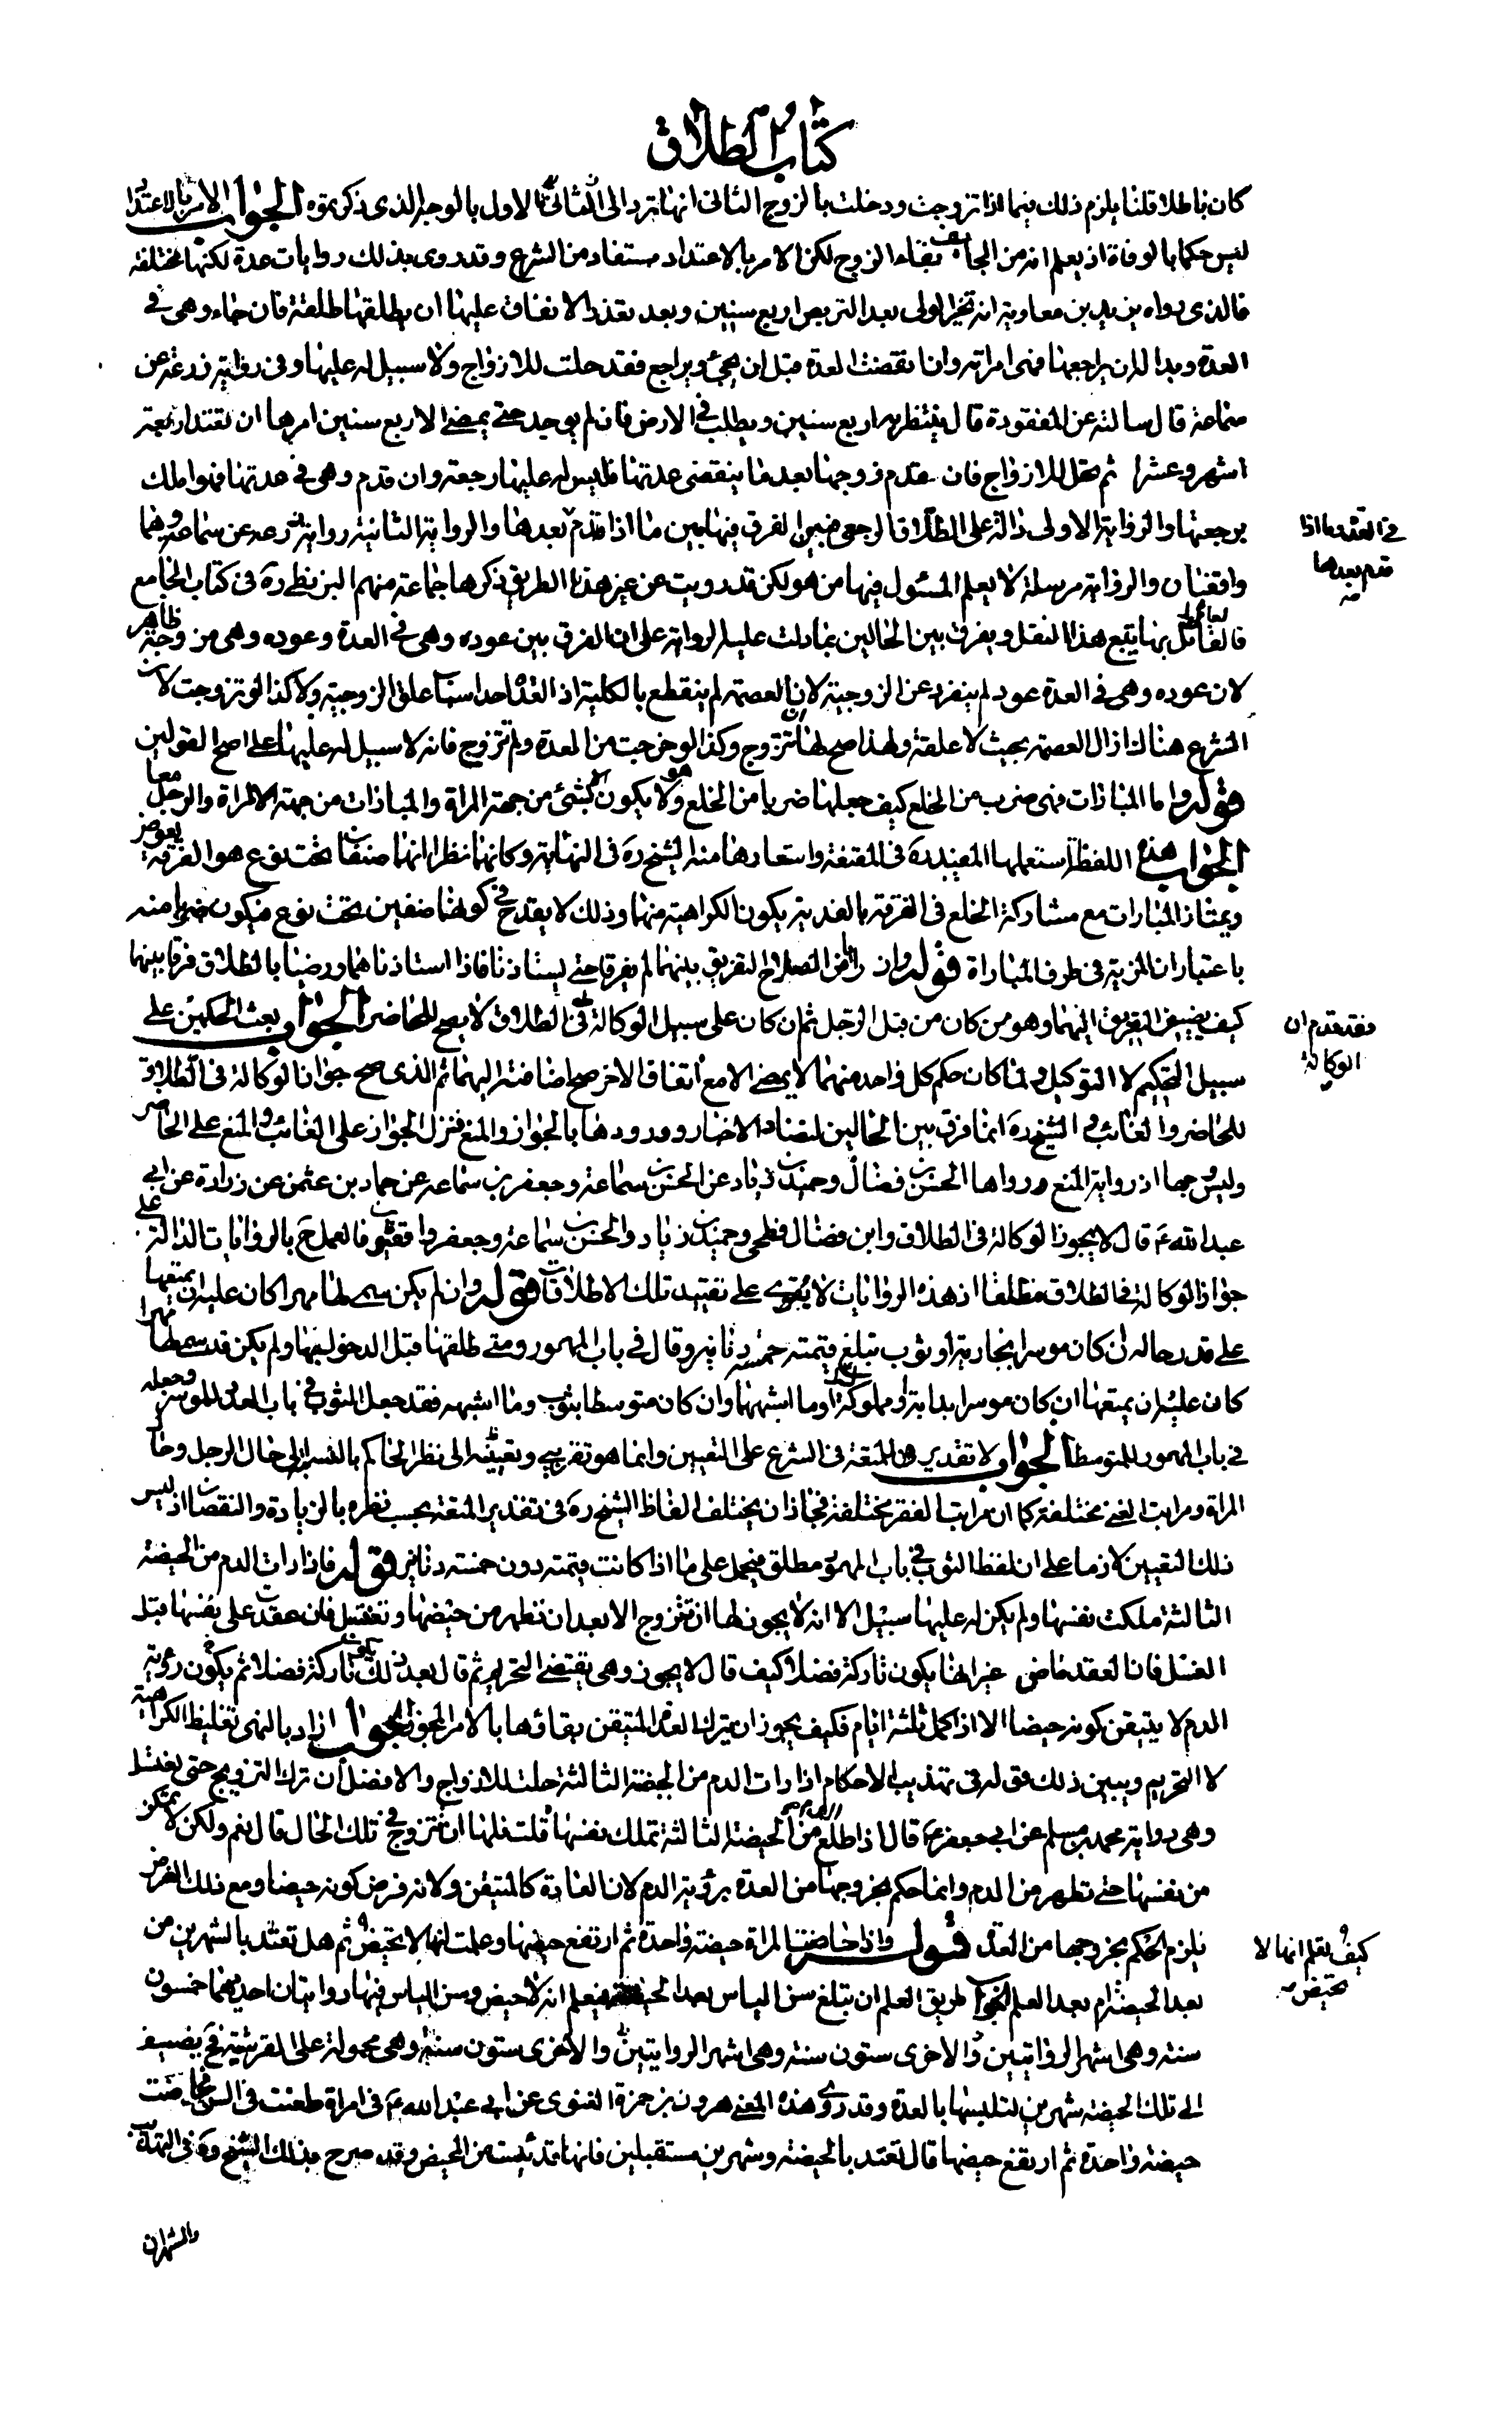 كتاب الطلاق
كان باطلا قلنا يلزم ذلك بينما اذا تزوجت ودخلت بالزوج الثانى انها ترد الى الثانى الاول بالوجه الذى ذكرتموه الجواب الامر بالاعتداد
ليس حكما بالوفاة اذ يعلم انه من الجائز بقاء الزوج لكن الامر بالاعتداد مستفاد من الشرع وقد روى بذلك روايات عدة لكنها مختلفة
فالذى رواه يزيد بن معاوية انه تخير الولى بعد التربص اربع سنين وبعد تعذر الانفاق عليها ان يطلقها طلقة فان جاء وهى فى
العدة وبدا له ان يراجعها فهى امراته وان انقضت العدة قبل ان يجئ ويراجع فقد حلت للازواج ولا سبيل له عليها وفى رواية زرعة عن
سماعة قال سالته عن المفقودة قال ينتظر به اربع سنين ويطلب فى الارض فان لم يوجد حتى يمضى الاربع سنين امرها ان تعتد اربعة
اشهر وعشرا ثم تحل للازواج فان قدم زوجها بعد ما ينقضى عدتها فليس له عليها رجعة وان قدم وهى فى عدتها فهو املك
برجعتها والرواية الاولى دالة على الطلاق الرجعى فتبين الفرق فيها بين ما اذا قدم بعدها والرواية الثانية رواية زرعه عن سماعة وهما
فى العدة وما اذا
قدم بعدها
صه
واقفيان والرواية مرسلة لا يعلم المسئول فيها من هو لكن قد رويت عن غير هذا الطريق ذكرها جماعة منهم البزنطى ره فى كتاب الجامع
فالقائل بها يتبع هذا النقل ويفرق بين الحالين بما دلت عليه الرواية على ان الفرق بين عوده وهى فى العدة وعوده وهى مزوجة ظاهر
لان عوده وهى فى العدة عود لم ينفرد عن الزوجية لان العصمة لم ينقطع بالكلية اذ العدة احد اسباب علق الزوجية ولا كذا لو تزوجت لان
الشرع هناك ازال العصمة بحيث لا علقة ولهذا صح لها ان تتزوج وكذا لو خرجت من العدة ولم تتزوج فانه لا سبيل له عليها على اصح القولين
قوله واما المبارات فهى ضرب من الخلع كيف جعلها ضربا من الخلع وهو لا يكون الا بشئ من جهة المراة والمبارات من جهة المراة والرجل معا
الجواب هذه اللفظة استعملها المفيد ره فى المقنعة واستعارها منه الشيخ ره فى النهاية وكانهما نظرا انهما صنفان تحت نوع هو الفرقة بعوض
ويمتاز المبارات مع مشاركة الخلع فى الفرقة بالفدية بكون الكراهية منهما وذلك لا يقدح فى كونهما صنفين تحت نوع فيكون ضربا منه
باعتبار ان المزية فى طرف المباراة قوله وان رايا من الصلاح التفريق بينهما لم يفرقا حتى يستاذنا فاذا استاذناهما ورضيا بالطلاق فرقا بينهما
كيف يضيف التفريق اليهما وهو من كان من قبل الرجل ثم ان كان على سبيل الوكالة فى الطلاق لا يصح للحاضر الجواب بعث الحكمين على
فقد تقدم ان
الوكالة
سبيل التحكيم لا التوكيل ولما كان حكم كل واحد منهما لا يمضى الا مع اتفاق الاخر صح اضافته اليهما ثم الذى صح جواز الوكالة فى الطلاق
للحاضر والغائب والشيخ ره انما فرق بين الحالين لتضاد الاخبار وورودها بالجواز والمنع فنزل الجواز على الغائب والمنع على الحاضر
وليس جمعا اذ رواية المنع رواها الحسن بن فضال وحميد بن زياد عن الحسن بن سماعة وجعفر بن سماعه عن حماد بن عثمن عن زرارة عن ابى
عبد الله ع قال لا يجوز الوكالة فى الطلاق وابن فضال فطحى وحميد بن زياد والحسن بن سماعة وجعفر واقفيون فالعمل ح بالروايات الدالة على
جواز الوكالة فى الطلاق مطلقا اذ هذه الروايات لا يقوى على تقييد تلك الاطلاقات قوله وان لم يكن سمى لها مهرا كان عليه ان يمتعها
على قدر حاله ان كان موسرا بجارية او ثوب تبلغ قيمته خمسه دنانير وقال فى باب المهور ومتى طلقها قبل الدخول بها ولم يكن قد سمى لها مهرا
كان عليه ان يمتعها ان كان موسرا بدابة او مملوكة او ما اشبههما وان كان متوسطا بثوب وما اشبهه فقد جعل الثوب فى باب العدد للموسر وجعله
فى باب المهور للمتوسط الجواب لا تقدير للمتعة فى الشرع على التعيين وانما هو تقريبى وتعيينه الى نظر الحاكم بالنسبة الى حال الرجل وحال
المراة ومراتب الغنى مختلفة كما ان مراتب الفقر مختلفة فجاز ان يختلف الفاظ الشيخ ره فى تقدير المتعة بحسب نظره بالزيادة والنقصان اذ ليس
ذلك التعيين لازما على ان لفظ الثوب فى باب المهور مطلق فيحمل على ما اذا كانت قيمته دون خمسه دنانير قوله فاذا رات الدم من الحيضة
الثالثة ملكت نفسها ولم يكن له عليها سبيل الا انه لا يجوز لها ان تتزوج الا بعد ان تطهر من حيضها وتغتسل فان عقدت على نفسها قبل
الغسل فان العقد ماض غير انها يكون تاركة فضلا كيف قال لا يجوز وهى يقتضى التحريم ثم قال بعد ذلك تكون تاركة فضلا ثم يكون رؤية
الدم لا يتيقن كونه حيضا الا اذا كمل ثلثة ايام فكيف يجوز ان يترك العدة المتيقن بقاؤها بالامر المجوز الجواب اراد بالنهى تغليظ الكراهية
لا التحريم ويبين ذلك قوله فى تهذيب الاحكام اذا رات الدم من الحيضة الثالثة حلت للازواج والافضل ان تترك التزويج حتى يغتسل
وهى رواية محمد بن مسلم عن ابى جعفر ع قال اذا طلع الدم من الحيضة الثالثة تملك نفسها قلت فلها ان تتزوج فى تلك الحال قال نعم ولكن لا تمكن
من نفسها حتى تطهر من الدم وانما حكم بخروجها من العدة برؤية الدم لان العادة كالمتيقن ولانه فرض كونه حيضا ومع ذلك الفرض
يلزم الحكم بخروجها من العدة قوله واذا حاضت المراة حيضة واحدة ثم ارتفع حيضها وعلمت انها لا تحيض ثم هل تعتد بالشهرين من
كيف يعلم انها لا
تحيض صه
بعد الحيضة ام بعد العلم الجواب طريق العلم ان تبلغ سن الياس بعد الحيضة فيعلم انه لا حيض وسن الياس فيها روايتان احديهما خمسون
سنة وهى اشهر الروايتين والاخرى ستون سنة وهى اشهر الروايتين والاخرى ستون سنة وهى محمولة على القرشية فح يضيف
الى تلك الحيضة شهرين لتلبسها بالعدة وقد روى هذه المعنى هرون بن حمزة الغنوى عن ابى عبد الله ع فى امراة طعنت فى السن فحاضت
حيضة واحدة ثم ارتفع حيضها قال تعتد بالحيضة وشهرين مستقبلين فانها قد ئيست من الحيض وقد صرح بذلك الشيخ ره فى التهذيب
والشهران